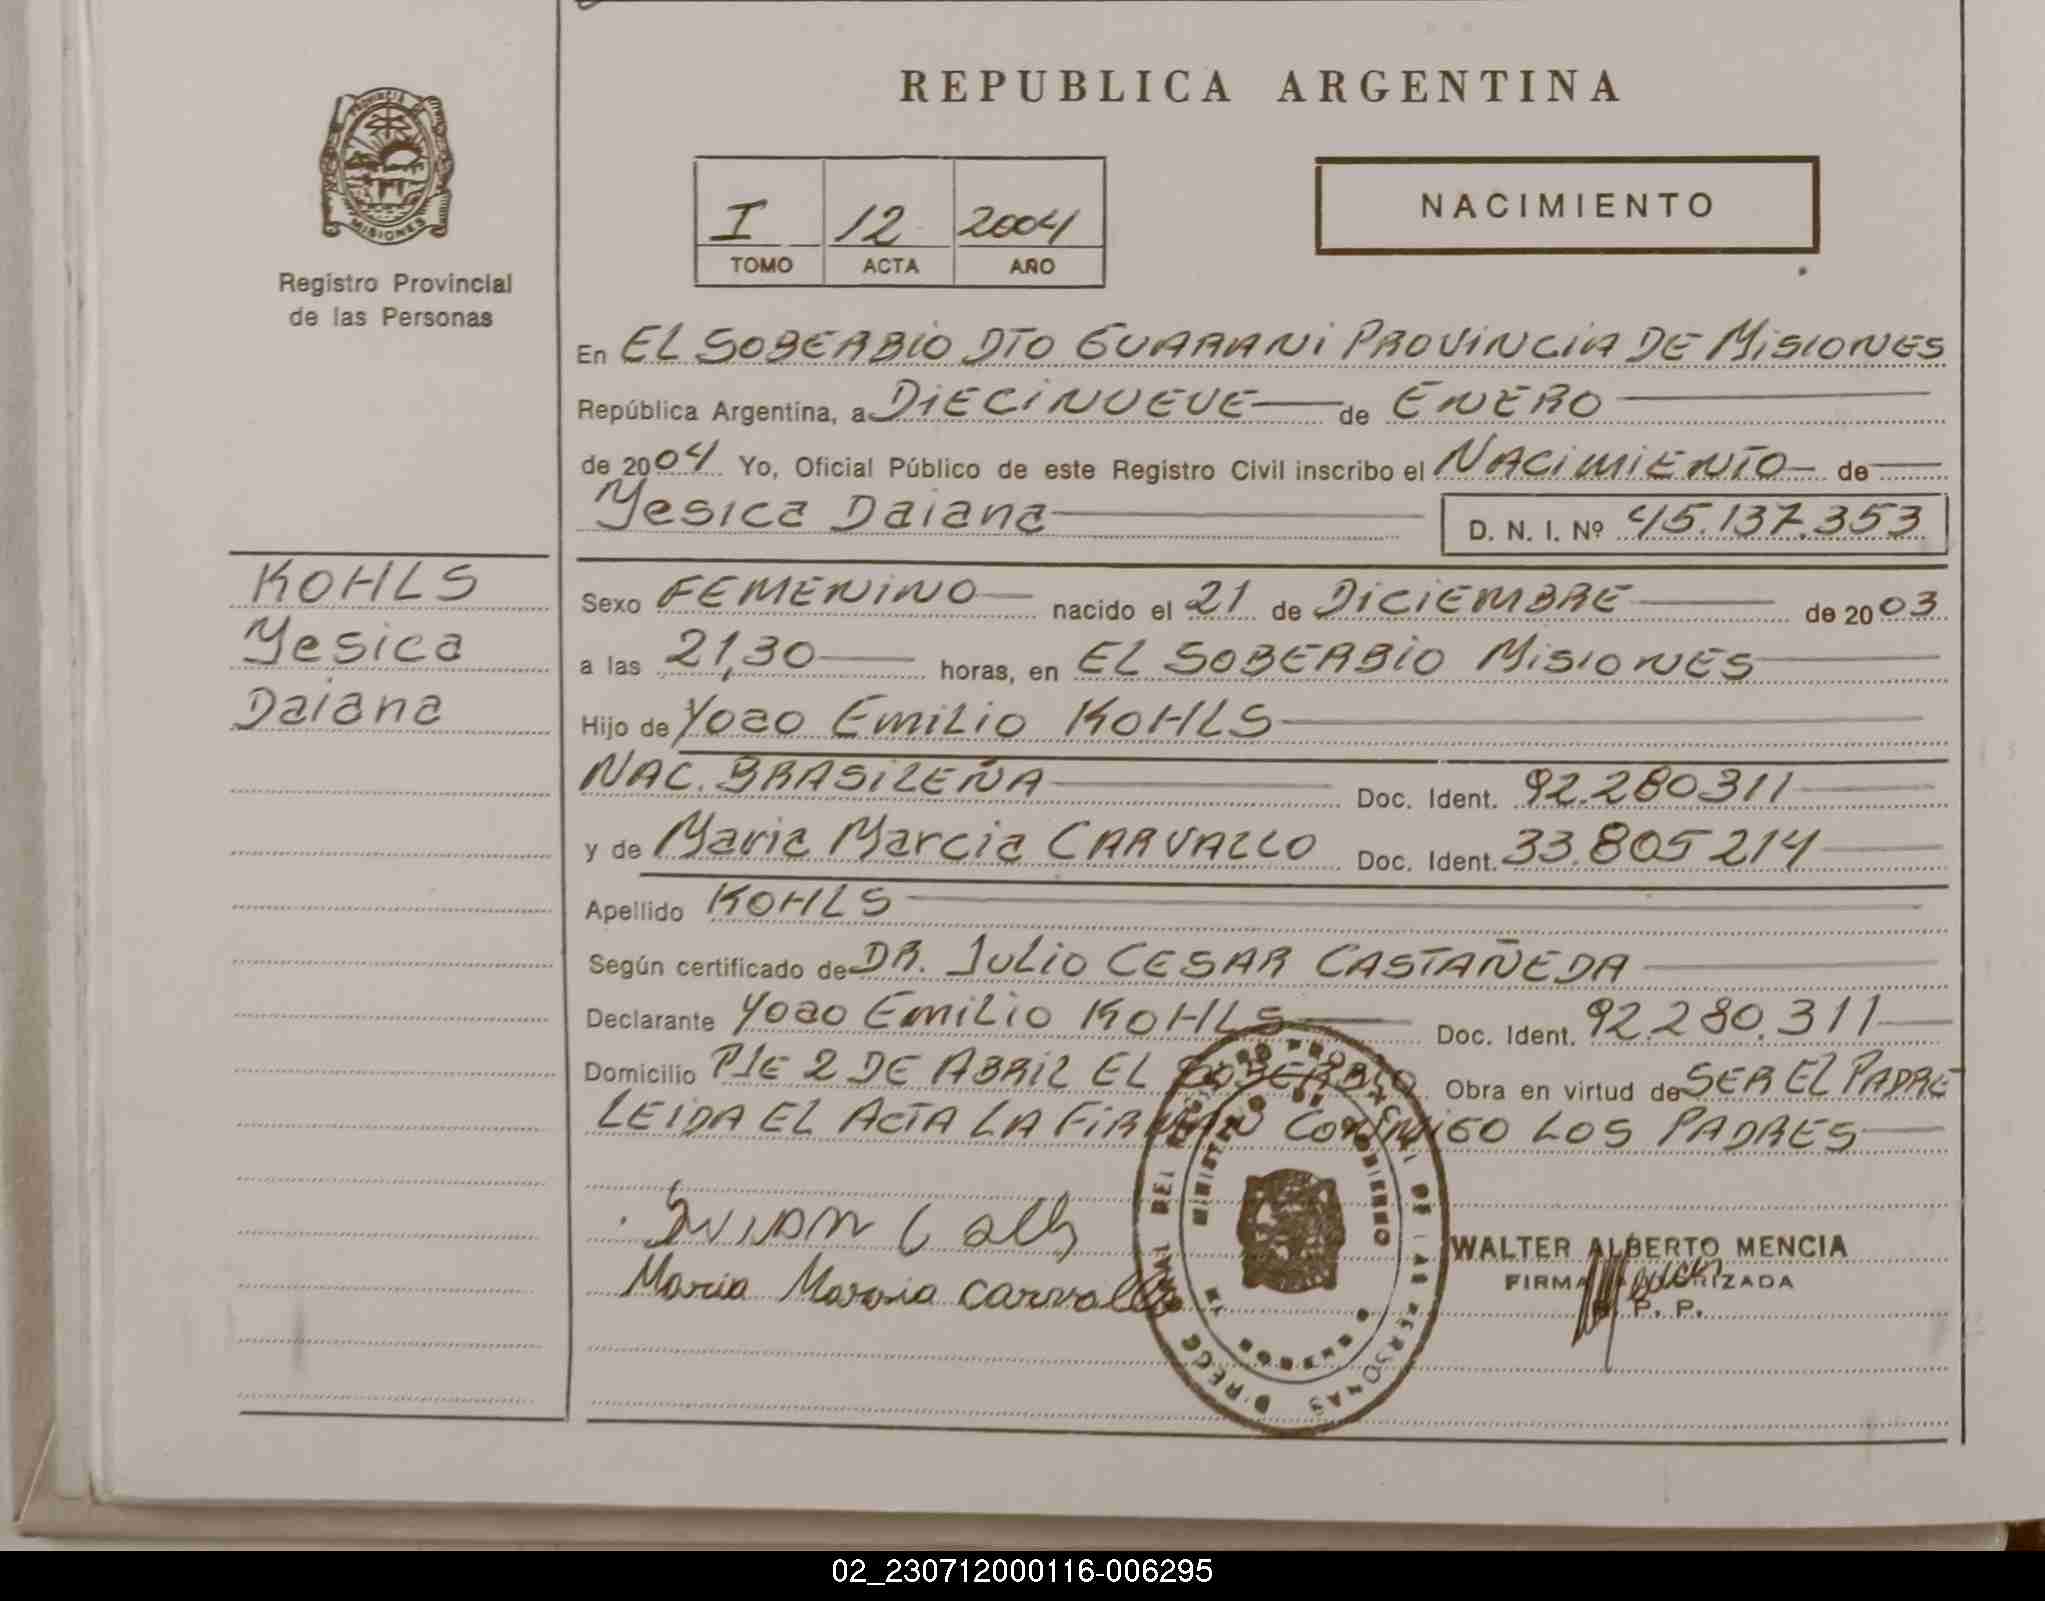 REPUBLICA ARGENTINA
PROVINCIA
MISIONES
Registro Provincial
de las Personas
I 12 2004
TOMO ACTA AÑO
NACIMIENTO
En EL SOBERBIO DTO GUARANI PROVINCIA DE MISIONES
República Argentina, a DIECINUEVE de ENERO
de 2004 Yo, Oficial Público de este Registro Civil inscribo el NACIMIENTO de
Yesica Daiana D. N. I. Nº 45.137.353
KOHLS
Yesica
Daiana
Sexo FEMENINO nacido el 21 de DICIEMBRE de 2003
a las 21,30 horas, en EL SOBERBIO MISIONES
Hijo de Yoao EMILIO KOHLS
NAC. BRASILEÑA Doc. Ident. 92.280311
y de Maria Marcia CARVALLO Doc. Ident. 33.805214
Apellido KOHLS
Según certificado de DR. JULIO CESAR CASTAÑEDA
Declarante Yoao EMILIO KOHLS Doc. Ident. 92.280.311
Domicilio PJE 2 DE ABRIL EL SOBERBIO Obra en virtud de SER EL PADRE
LEIDA EL ACTA LA FIRMAN CONMIGO LOS PADRES
Maria Marcia Carvallo
WALTER ALBERTO MENCIA
FIRMA AUTORIZADA
R. P. P.
02_230712000116-006295